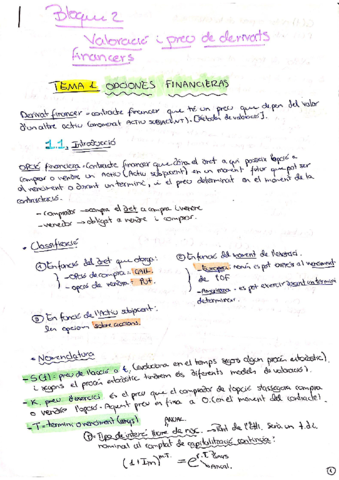 Bloque 2
Valoració i preu de derivats
financers
TEMA 1. OPCIONES FINANCIERAS
Derivat financer = contracte financer que té un preu que depen del valor
d'un altre actiu (anomenat ACTIU SUBJACENT). [Mètodes de valoració].
1.1. Introducció
OPCIÓ financiera = contracte financer que dóna el dret a qui posseeix l'opció a
comprar o vendre un Actiu (Actiu subjacent) en un moment futur que pot ser
al venciment o durant un termini, i el preu determinat en el moment de la
contractació.
- comprador → compra el dret a comprar i vendre
- venedor → obligat a vendre i comprar.
• Classificació
① En funció del dret que otorga:
- opcions de compra = CALL
- opcions de venda = PUT.
② En funció del moment de l'exercici.
- Europea: només es pot exercir al venciment
de l'OF
- Americana: es pot exercir
determinar.
③ En funció de l'Actiu subjacent:
Ser opcions sobre accions.
• Nomenclatura
- S(t): preu de l'acció a t, (evoluciona en el temps segons algun procés estocàstic).
i segons el procés estocàstic tindrem els diferents models de valoració).
- K: preu d'exercici. És el preu que el comprador de l'opció s'assegura comprar
o vendre l'opció. Aquest preu es fixa a 0. (en el moment del contracte).
- T = termini o venciment (anys)
ANUAL
Tipus de interès lliure de risc. Pot de l'Eº, serà un t.i.
nominal al comptat de capitalització contínua:
(1+Im)^m·T = e^r·T
anys
Anual.
1